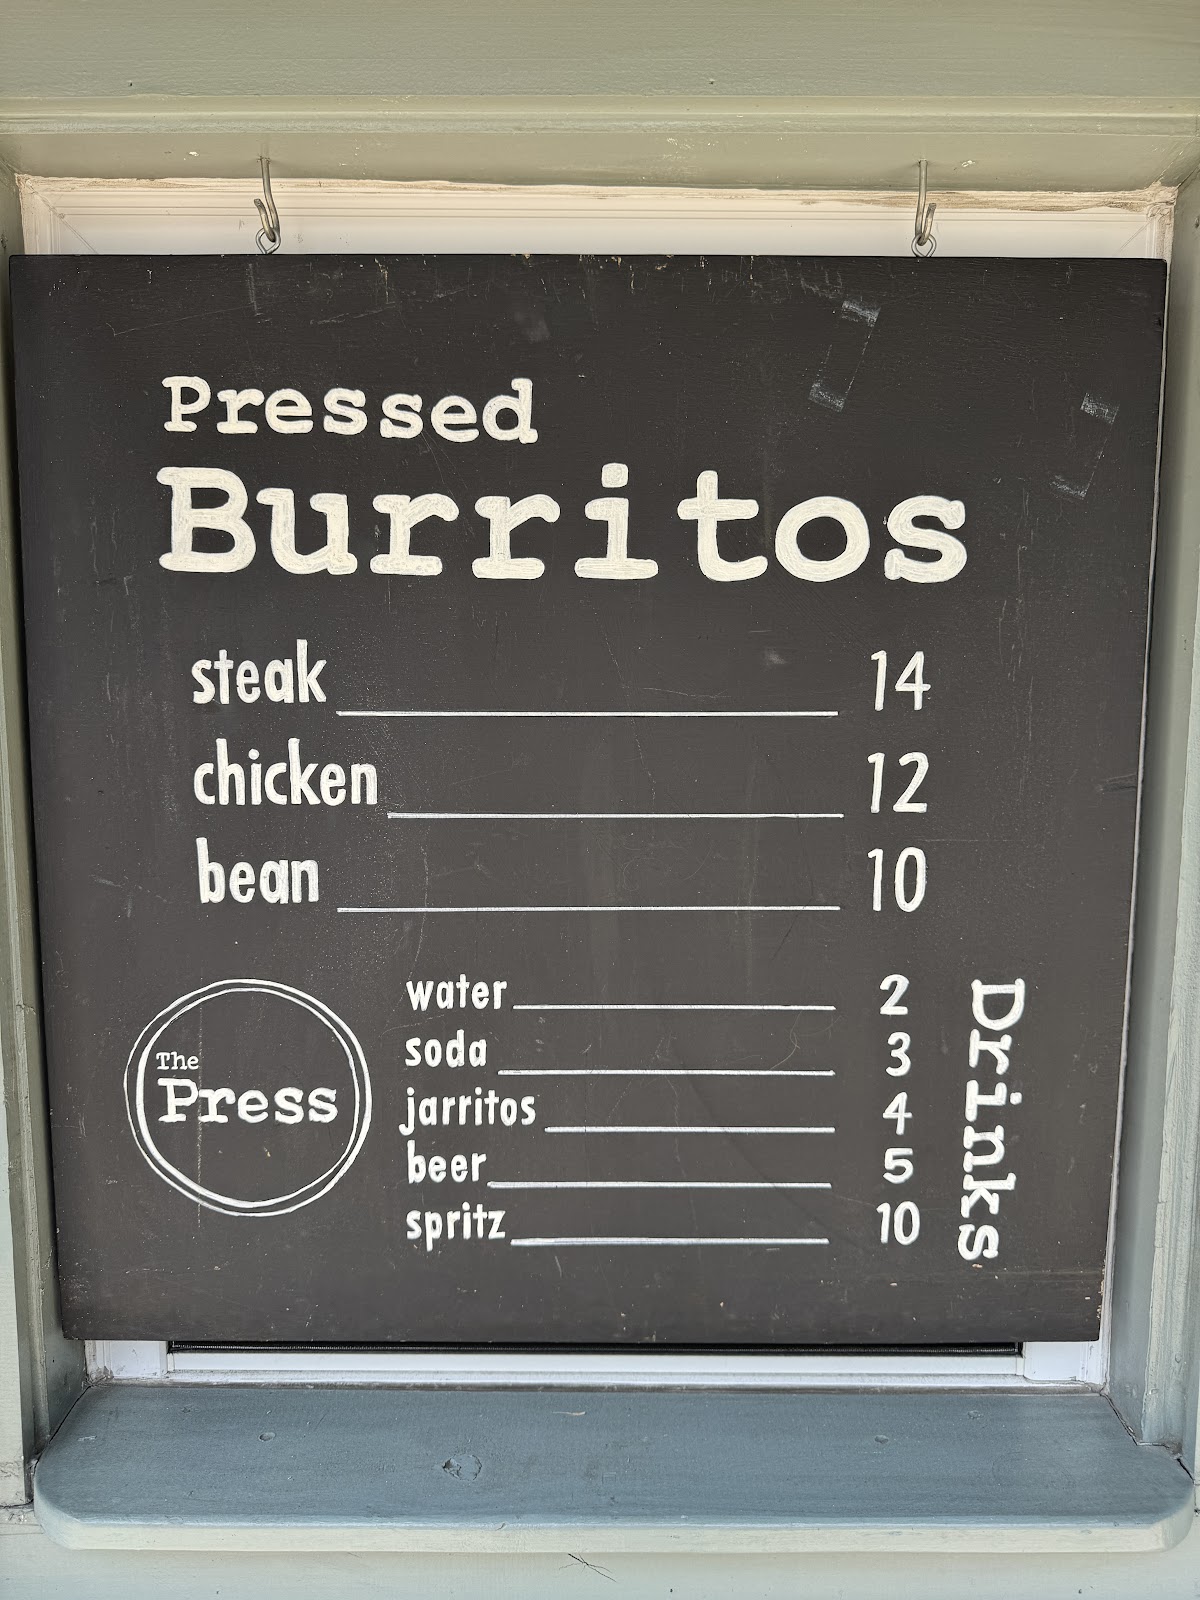 Pressed
Burritos
steak 14
chicken 12
bean 10
The
Press
water 2
soda 3
jarritos 4
beer 5
spritz 10
Drinks